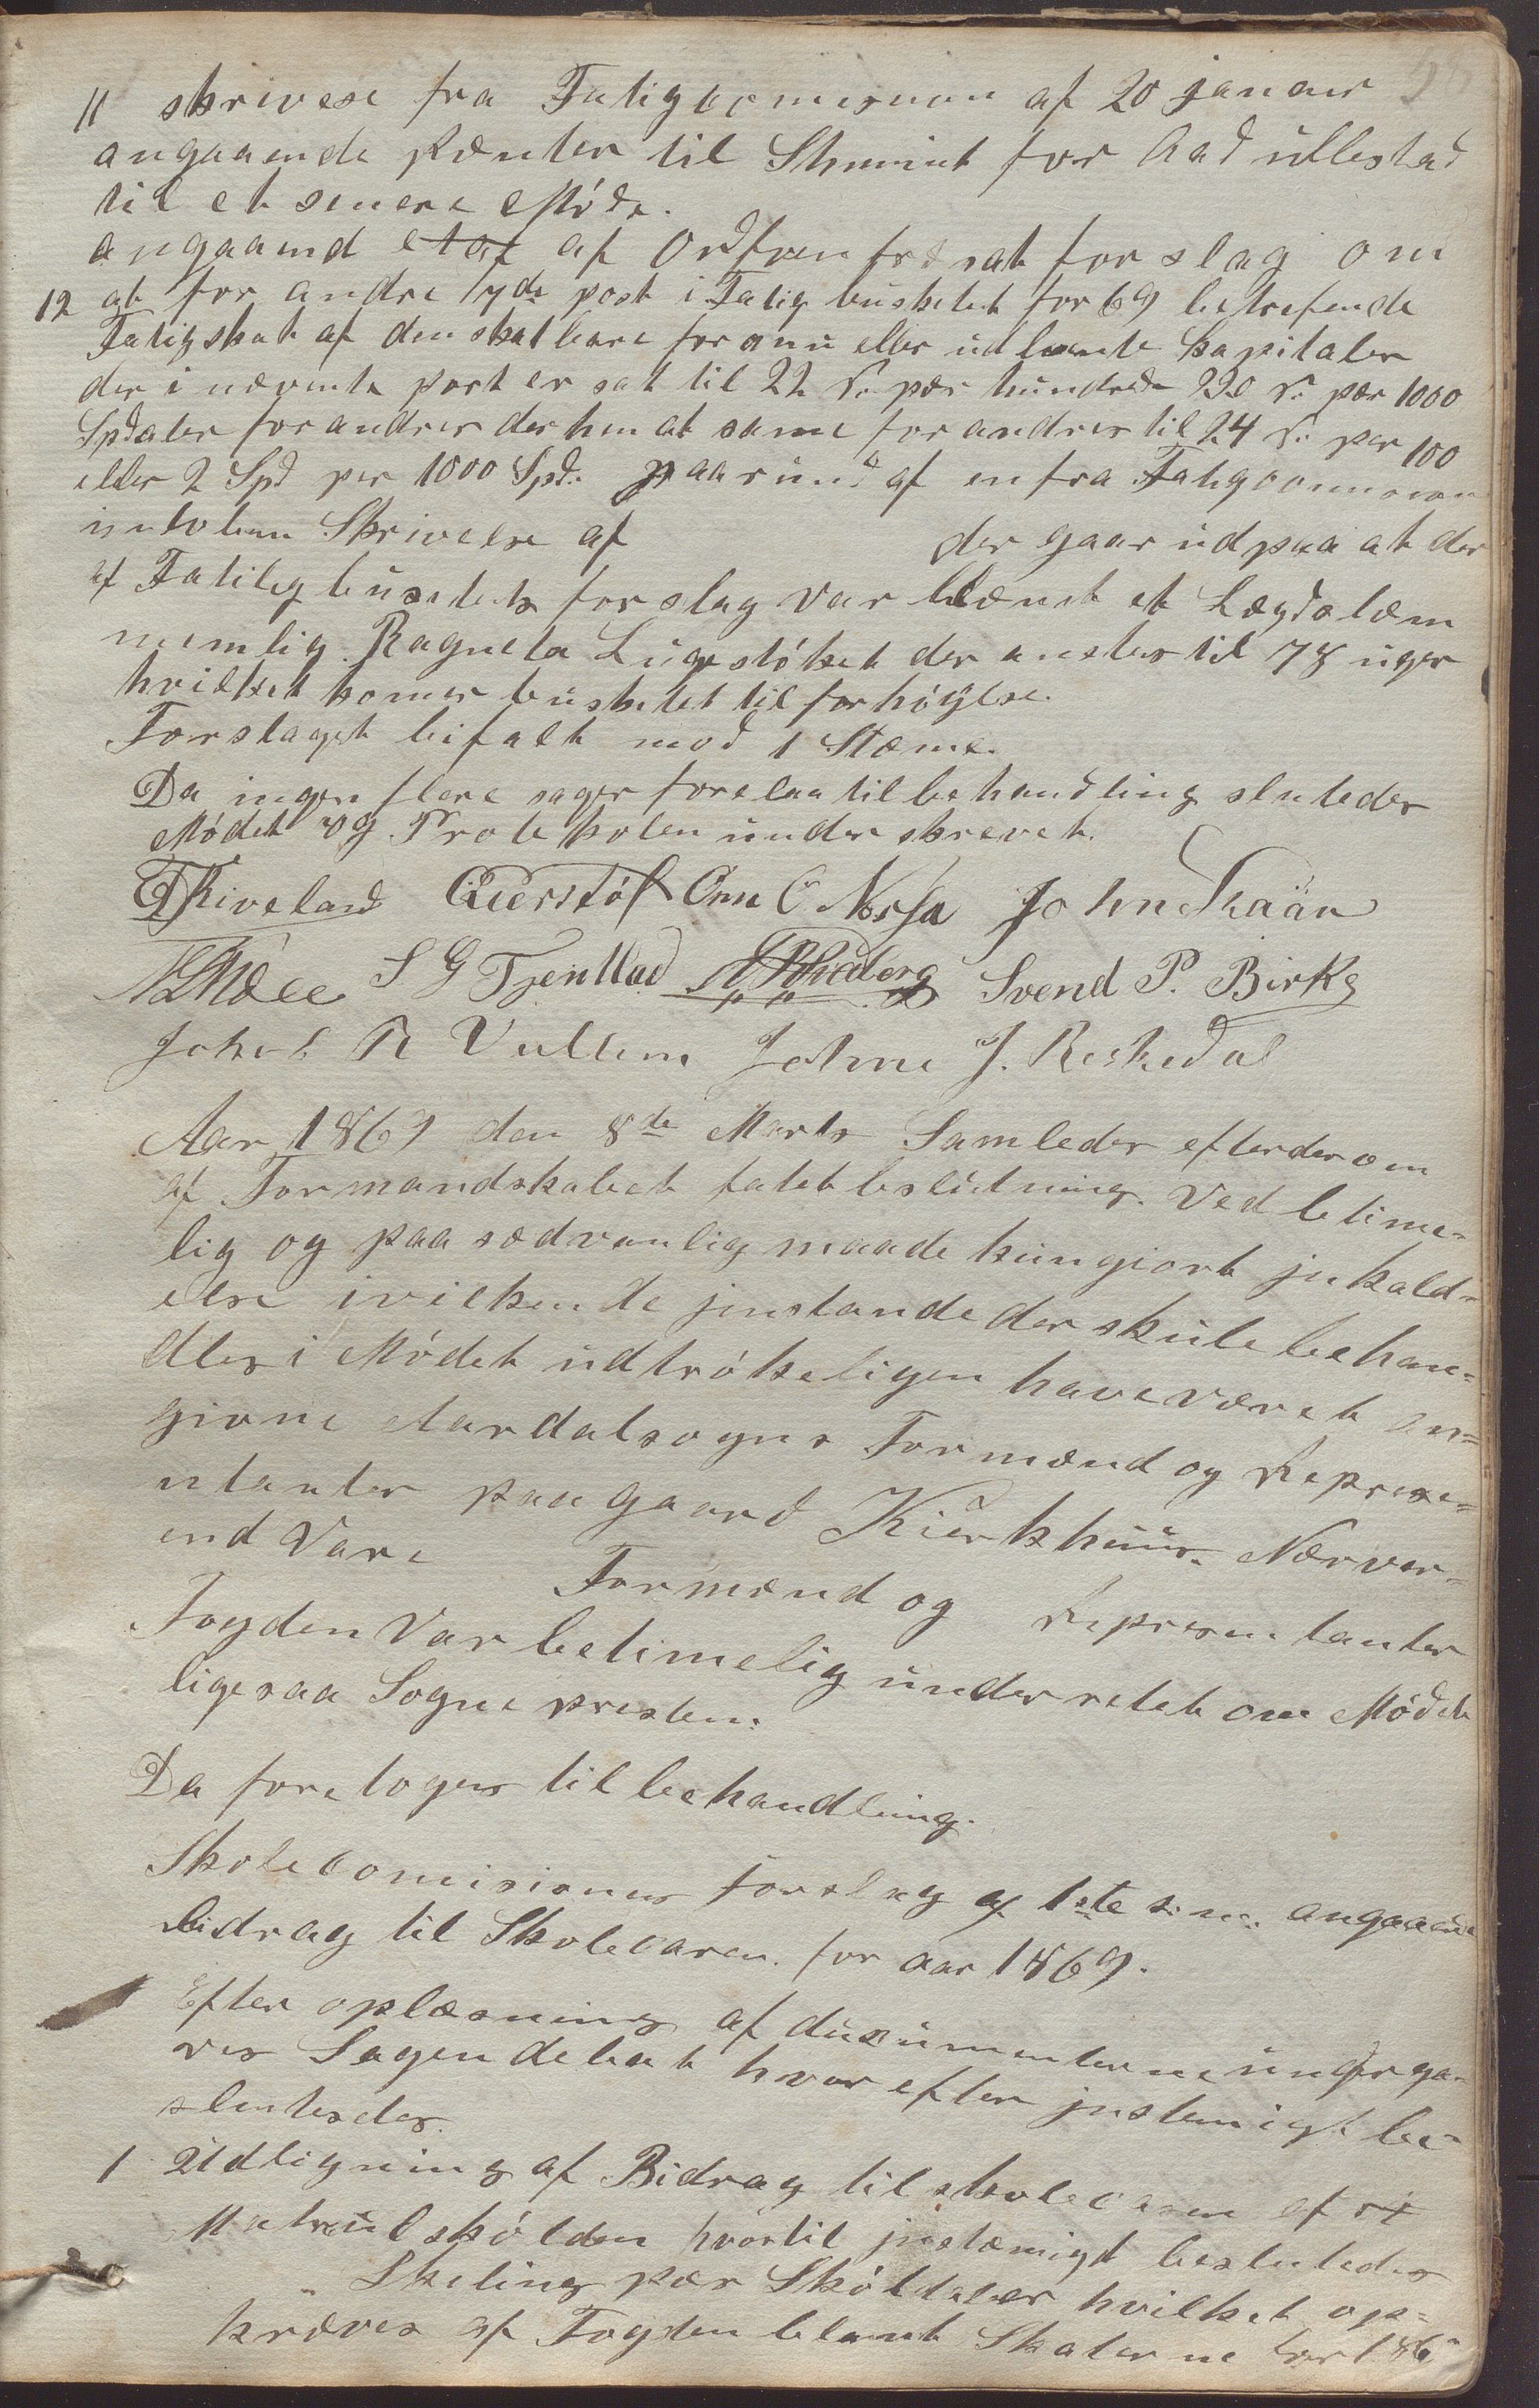 11 skrivese fra Fatigcomision af 20 januar
angaaende Renter til for Aad ullestad
til et senere Møde.
angaaend af Ordfren fresat forslag om
12 at for andre 7de post i Fatig busketet for 69 betrefende
Fatigskat af den skatbare formu eller udlaante Kapitaler
der i nævnte post er sat til 22 s. per hundrede 220 s. per 1000
Spdaler forandres derhen at same forandres til 24 s. per 100
eller 2 Spd per 1000 Spd. paa af en fra Fatigcommision
Skrivelse af der gaar ud paa at der
af Fatilig busetets forslag var et Lægdslæm
nemlig Ragnela Lugestøket der ansetes til 78 uger
hvilket komer busketet til forhøÿlse.
Forslaget bifalt mod 1 Stæme.
Da ingen flere sager forelaa til behandling sluteder
Mødet og Protokolen underskrevet.
T Riveland Qverstöl Onn O Nessa John Traän
S G Tjentlad Svend P. Birke
Jakob R Vullum Johne J. Reskedal
Aar 1869 den 8de Marts Samleder efter deræm
af Formandskabet fatet beslutning. Ved betime-
lig og paa sædvanlig maade kungiort jnkald-
else ivilkende jenstande der skule behan-
dles i Mødet udtrøkeligen have været an-
givne Aardalsogns Formænd og Represe-
ntanter paa gaard Kierkhuus. Nærver-
end Vare Formænd og Represen tanter
Fogden Var betimelig underretet om Mødet
ligesaa Sogne presten.
Da foretoges til behandling.
Skolecomisiones forslag af 1ste s. m. angaaende
bidrag til Skolecaren for aar 1869.
Efter oplæsning af ducumenterne underga-
ves Sagen debat hvor efter jnstemigt be-
sluteder.
1 Udligning af Bidrag til skolecasen af
Matreulskølden hvortil jnstæmigt besluteder
Skeling pær Skøldaler hvilket op-
kræves af Fogden blant Skaterne for 186